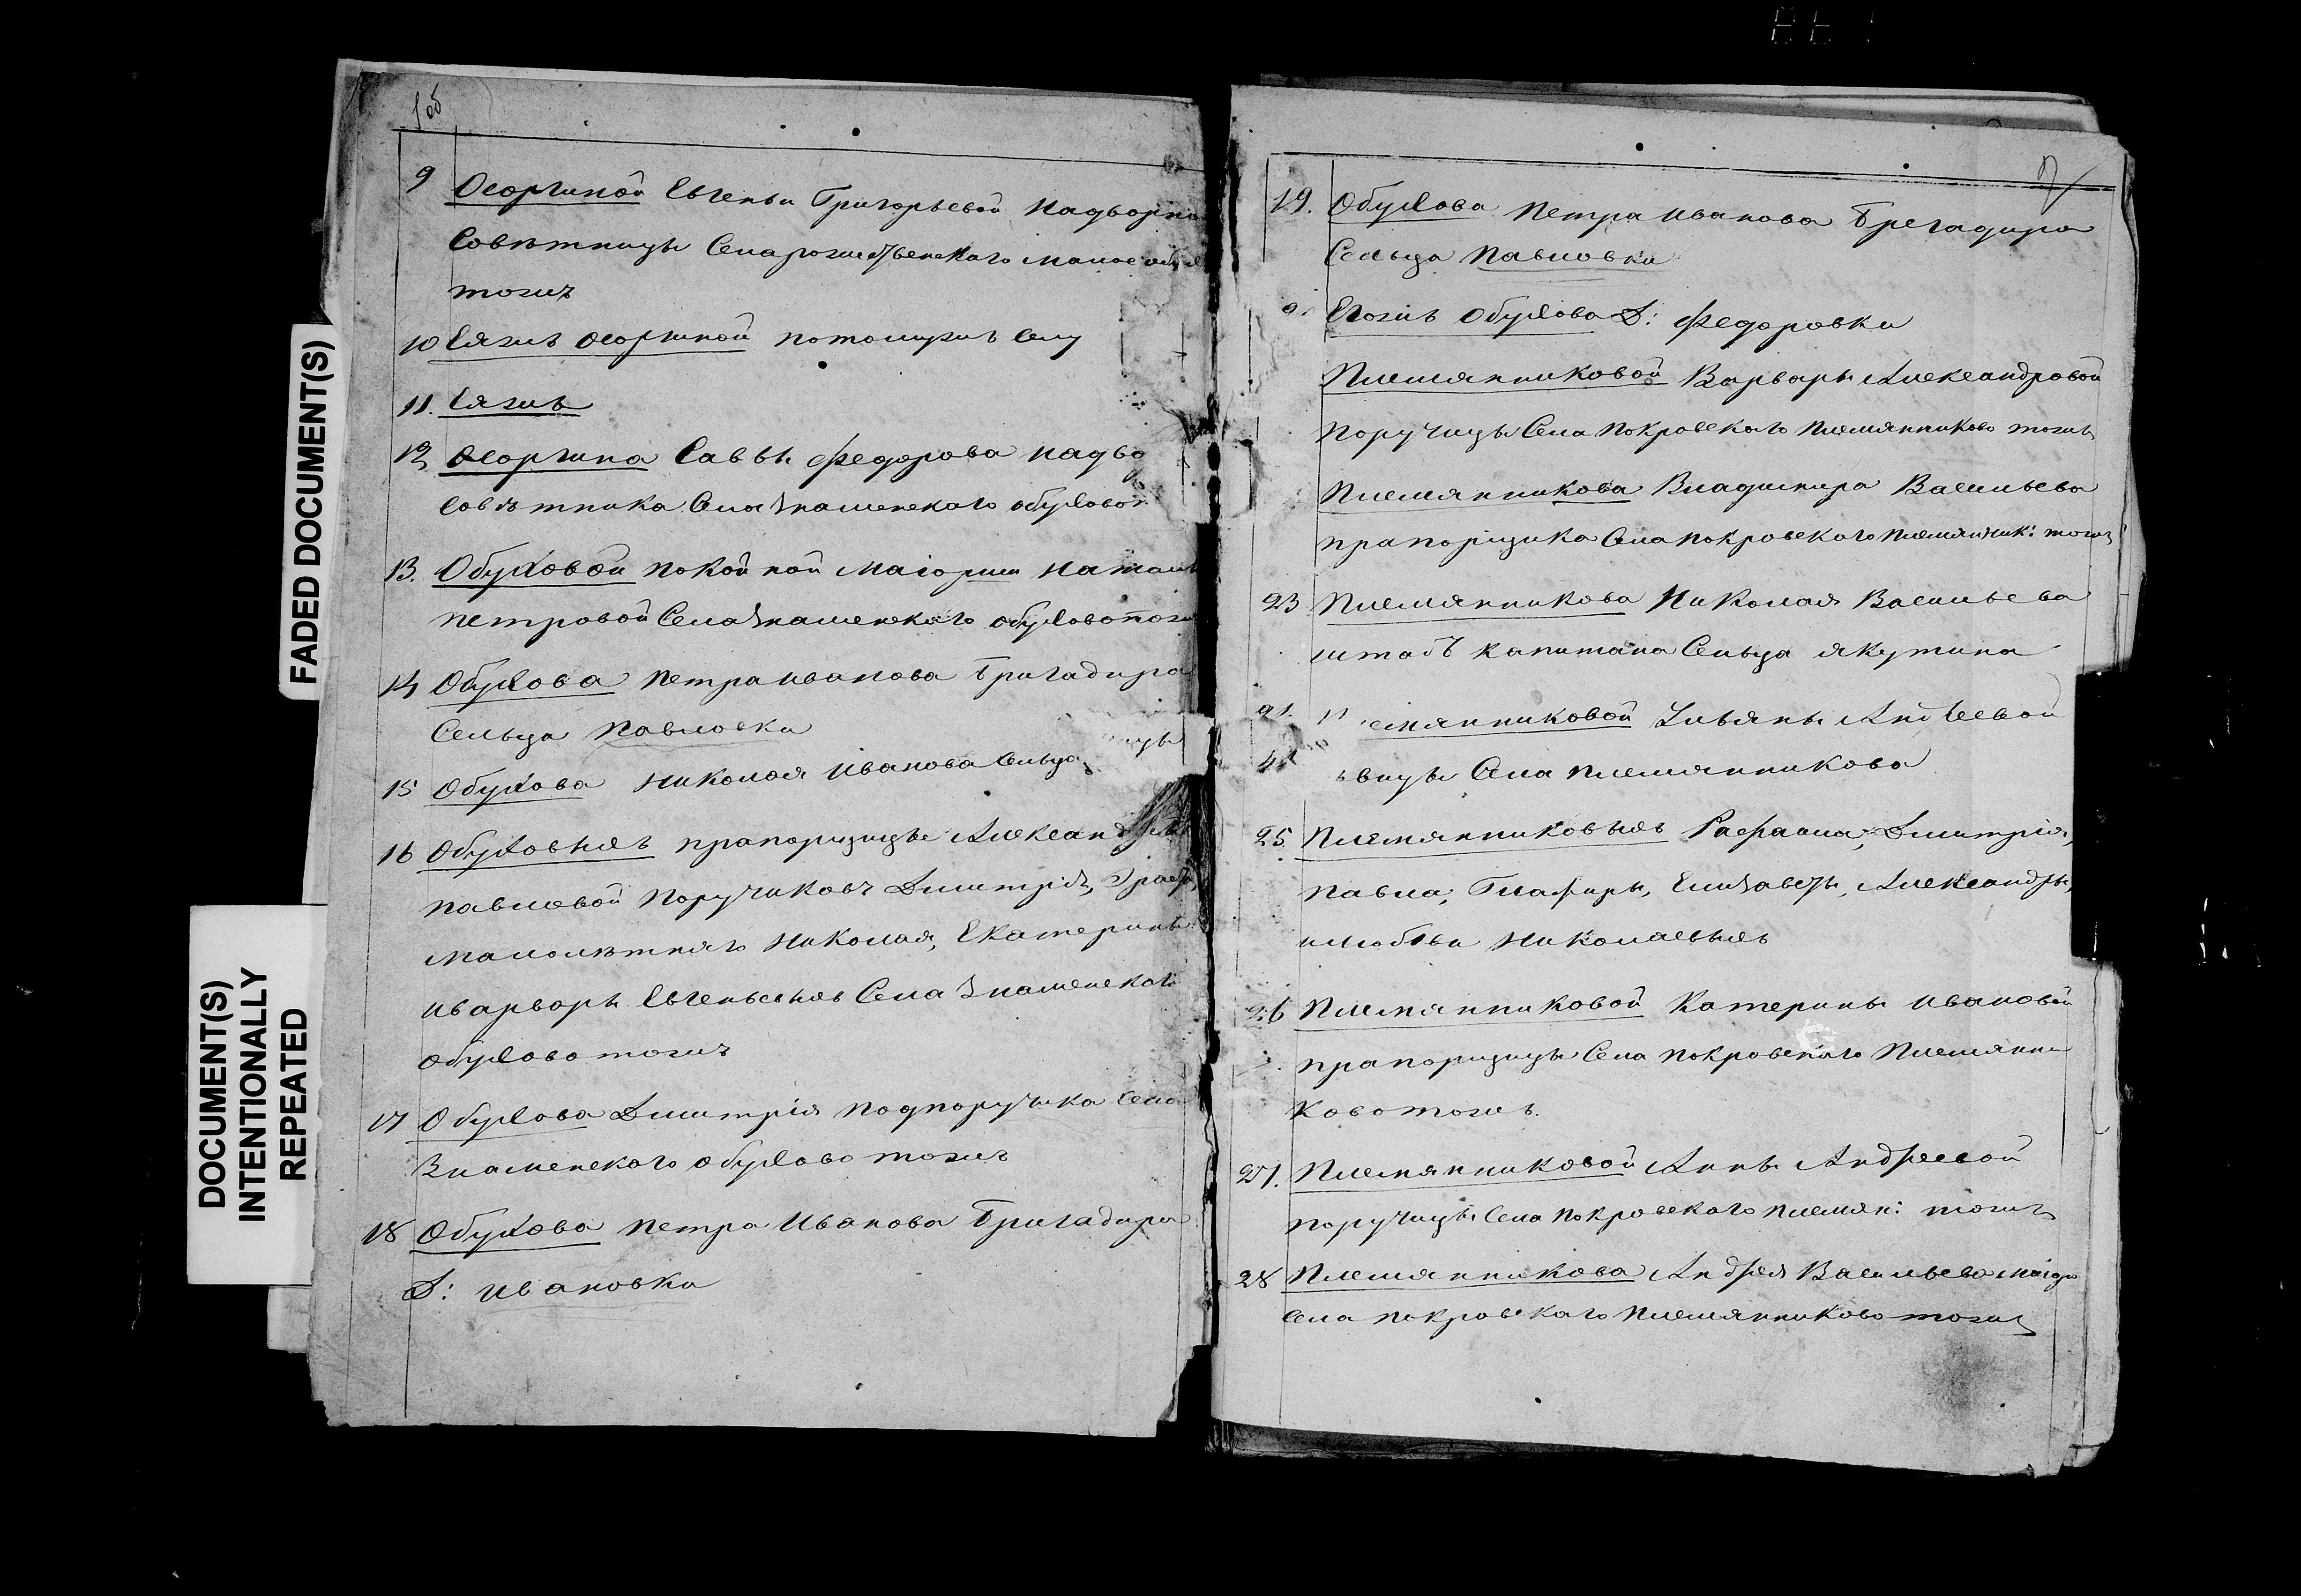 FADED DOCUMENT(S)
DOCUMENT(S)
INTENTIONALLY
REPEATED
1об
9 Осоргиной Евгеньи Григорьевой Надворно
Совѣтницы Села рождественского малое
тожъ
10 Еяжъ Осоргиной потомужъ Селу
11. Еяжъ
12 Осоргина Саввы Федорова Надво
Совѣтника Села Знаменского Обухово
13. Обуховой покойной Маіорши Натал
Петровой Села Знаменского Обухово тож
14 Обухова Петра Иванова Бригадира
Сельца Павловки
15 Обухова Николая Иванова Сельца
16 Обуховыхъ прапорщицы Александры
Павловой Поручиковъ Дмитрія,
малолѣтняго Николая, Екатерины
и варвары Евгеньевыхъ Села Знаменского
Обухово тожъ
17 Обухова Дмитрія подпоручика Села
Знаменского Обухово тожъ
18 Обухова Петра Иванова Бригадира
Д: Ивановки
19. Обухова Петра Иванова Брегадира
Сельца Павловки
Егожъ Обухова Д: Федоровки
Племянниковой Варвары Александровой
Поручицы Села Покровского Племянниково тожъ
Племянникова Владимира Васильева
прапорщика Села Покровского Племянник: тожъ
23 Племянникова Николая Васильева
штабъ капитана Сельца Якутина
емянниковой Ульяны Андреевой
вицы Села Племянникова
25. Племянниковыхъ Рафаила, Дмитрія,
Павла, Глафиры, Елизаветы, Александры,
и Любви Николаевыхъ
26 Племянниковой Катерины Ивановой
прапорщицы Села Покровского Племянни
ково тожъ.
27. Племянниковой Анны Андреевой
поручицы Села Покровского Племян: тожъ
28 Племянникова Андрея Васильева Маіора
Села Покровского Племянниково тожъ